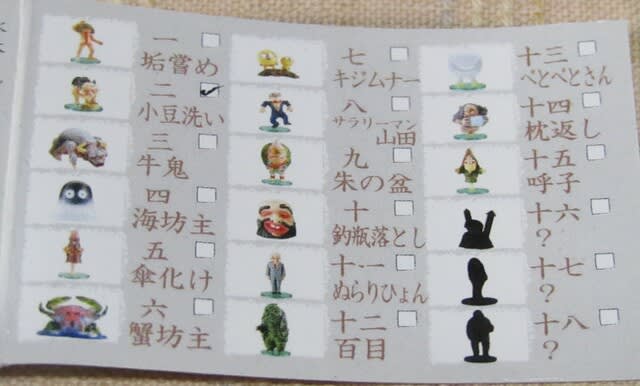 一
垢嘗め
二
小豆洗い
三
牛鬼
四
海坊主
五
傘化け
六
蟹坊主
七
キジムナー
八
サラリーマン
山田
九
朱の盆
十
釣瓶落とし
十一
ぬらりひょん
十二
百目
十三
べとべとさん
十四
枕返し
十五
呼子
十六
?
十七
?
十八
?